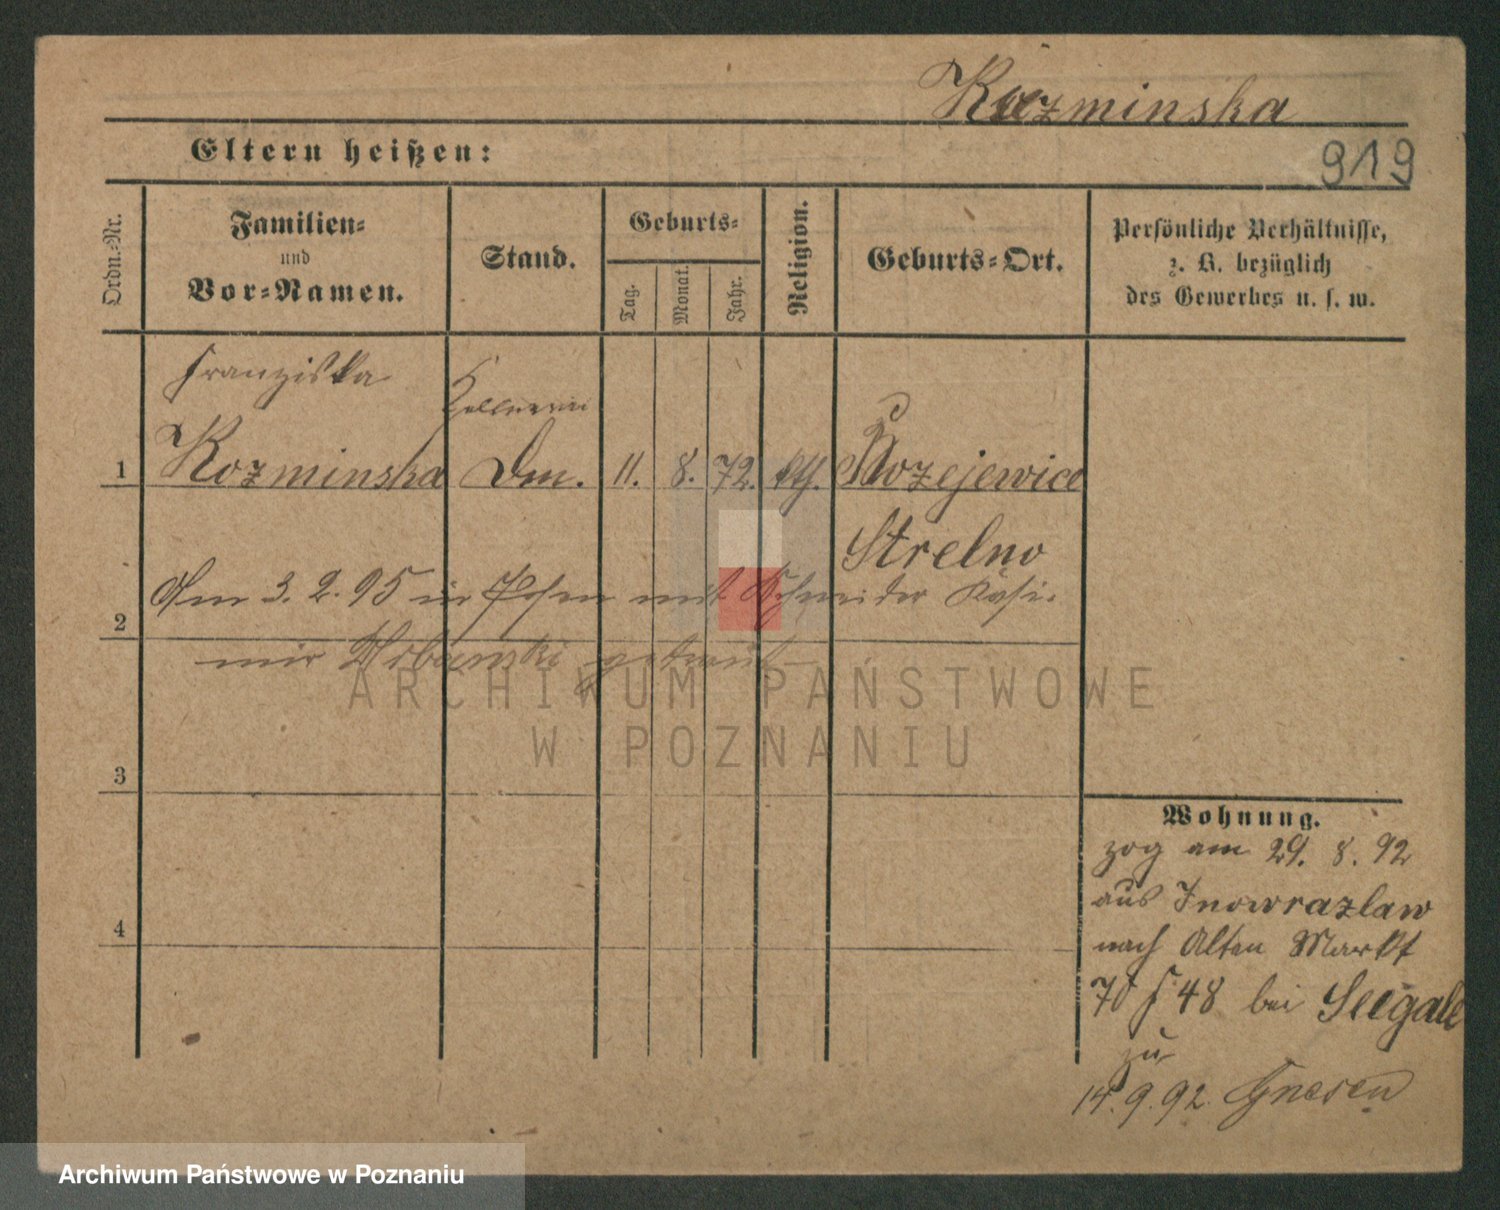 Kozminska
Eltern heißen:
919
Ordn.=Nr.
Familien=
und
Vor=Namen.
Stand.
Geburts=
Tag.
Monat.
Jahr.
Religion.
Geburts=Ort.
Persönliche Verhältnisse,
z. B. bezüglich
des Gewerbes u. s. w.
Franziska
Kellnerin
1 Kozminska 11. 8. 72. kth. Kozejewice
Strelno
Am 3. 2. 95 in Posen mit Schneider Kasi-
2
mir getraut
ARCHIWUM PAŃSTWOWE
W POZNANIU
3
Wohnung.
zog am 29. 8. 92
aus Inowrazlaw
4
nach Alten Markt
70 48 bei Seegall
zu
14. 9. 92. Gnesen
Archiwum Państwowe w Poznaniu